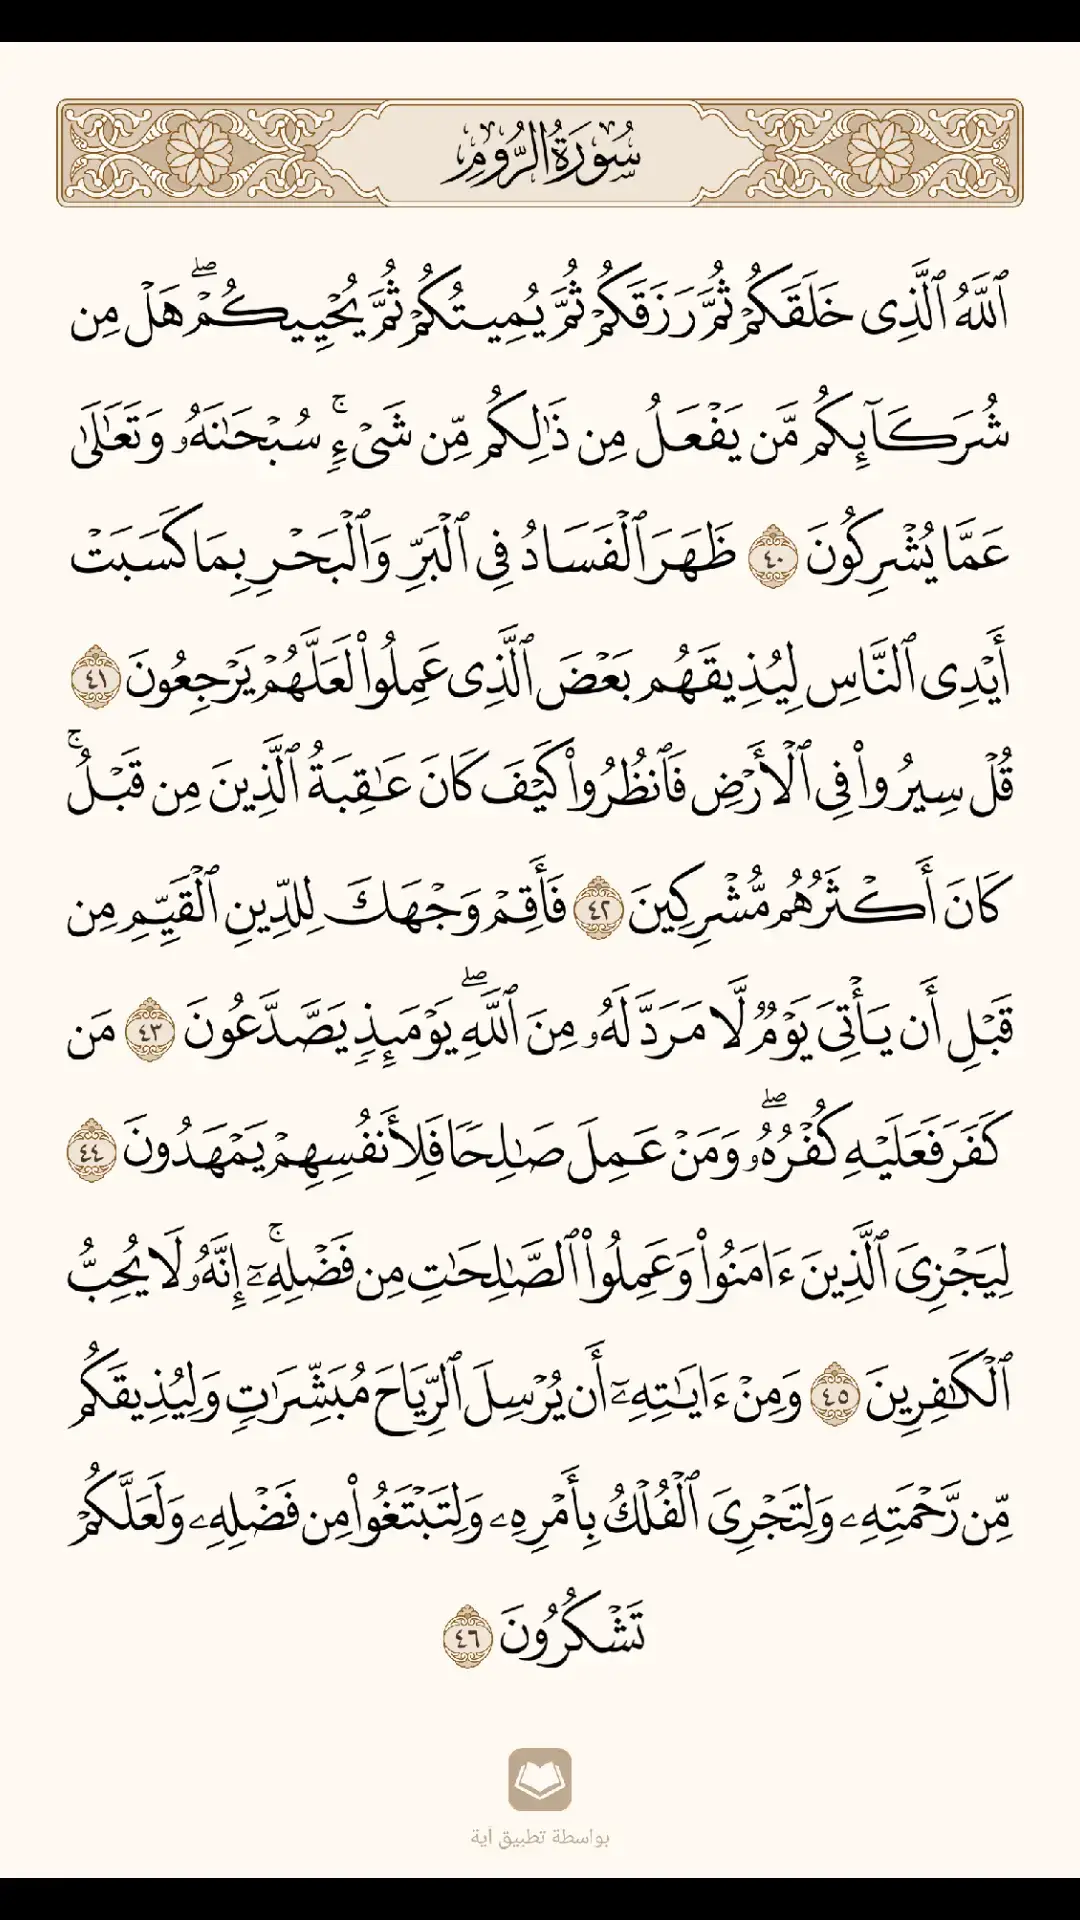 سُورَةُ الرُّومِ
ٱللَّهُ ٱلَّذِى خَلَقَكُمْ ثُمَّ رَزَقَكُمْ ثُمَّ يُمِيتُكُمْ ثُمَّ يُحْيِيكُمْ ۖ هَلْ مِن
شُرَكَآئِكُم مَّن يَفْعَلُ مِن ذَٰلِكُم مِّن شَىْءٍ ۚ سُبْحَـٰنَهُۥ وَتَعَـٰلَىٰ
عَمَّا يُشْرِكُونَ ٤٠ ظَهَرَ ٱلْفَسَادُ فِى ٱلْبَرِّ وَٱلْبَحْرِ بِمَا كَسَبَتْ
أَيْدِى ٱلنَّاسِ لِيُذِيقَهُم بَعْضَ ٱلَّذِى عَمِلُوا۟ لَعَلَّهُمْ يَرْجِعُونَ ٤١
قُلْ سِيرُوا۟ فِى ٱلْأَرْضِ فَٱنظُرُوا۟ كَيْفَ كَانَ عَـٰقِبَةُ ٱلَّذِينَ مِن قَبْلُ ۚ
كَانَ أَكْثَرُهُم مُّشْرِكِينَ ٤٢ فَأَقِمْ وَجْهَكَ لِلدِّينِ ٱلْقَيِّمِ مِن
قَبْلِ أَن يَأْتِىَ يَوْمٌ لَّا مَرَدَّ لَهُۥ مِنَ ٱللَّهِ ۖ يَوْمَئِذٍ يَصَّدَّعُونَ ٤٣ مَن
كَفَرَ فَعَلَيْهِ كُفْرُهُۥ ۖ وَمَنْ عَمِلَ صَـٰلِحًا فَلِأَنفُسِهِمْ يَمْهَدُونَ ٤٤
لِيَجْزِىَ ٱلَّذِينَ ءَامَنُوا۟ وَعَمِلُوا۟ ٱلصَّـٰلِحَـٰتِ مِن فَضْلِهِۦٓ ۚ إِنَّهُۥ لَا يُحِبُّ
ٱلْكَـٰفِرِينَ ٤٥ وَمِنْ ءَايَـٰتِهِۦٓ أَن يُرْسِلَ ٱلرِّيَاحَ مُبَشِّرَٰتٍ وَلِيُذِيقَكُم
مِّن رَّحْمَتِهِۦ وَلِتَجْرِىَ ٱلْفُلْكُ بِأَمْرِهِۦ وَلِتَبْتَغُوا۟ مِن فَضْلِهِۦ وَلَعَلَّكُمْ
تَشْكُرُونَ ٤٦
بواسطة تطبيق آية